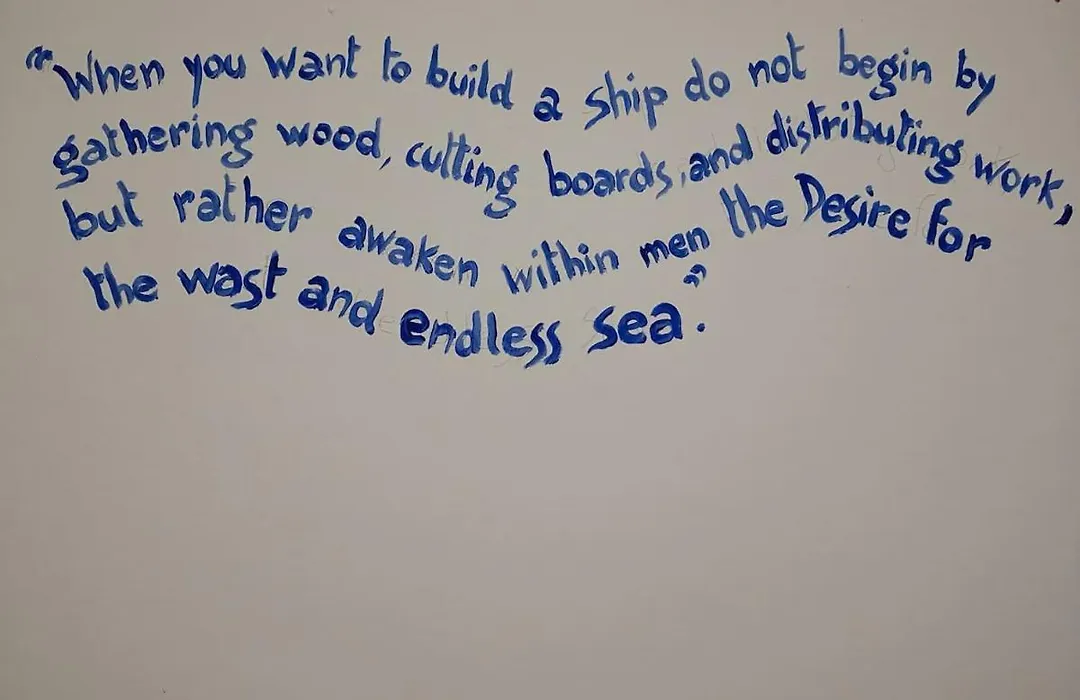 "When you want to build a ship do not begin by
gathering wood, cutting boards, and distributing work,
but rather awaken within men the Desire for
the wast and endless sea".